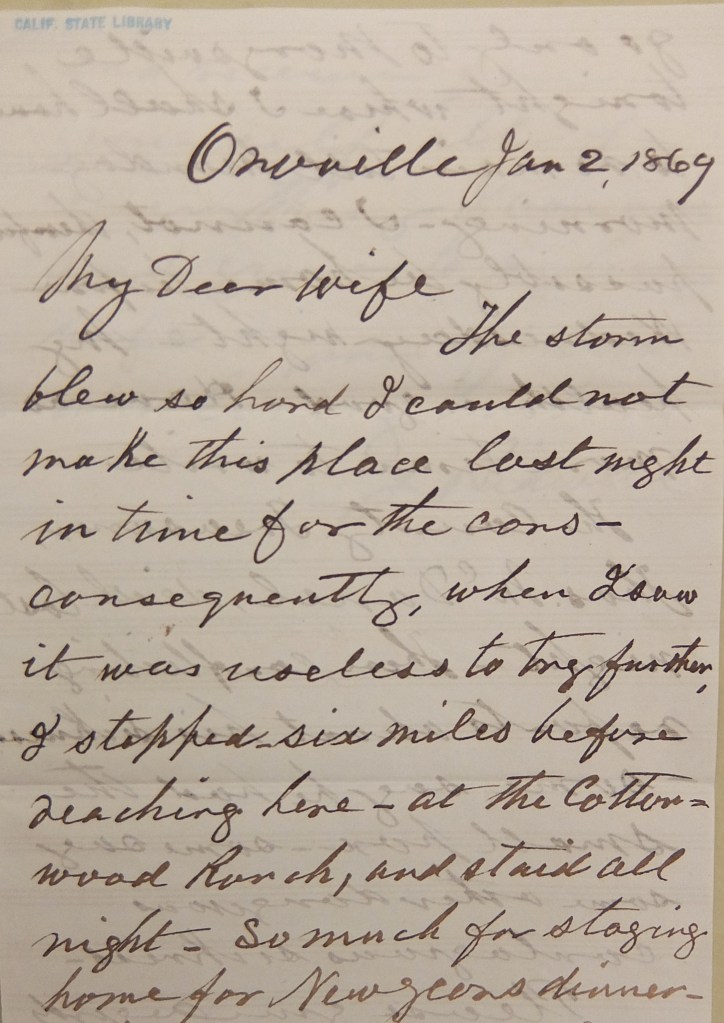 CALIF. STATE LIBRARY
Oroville Jan 2, 1869
My Dear Wife
The storm
blew so hard I could not
make this place last night
in time for the cars -
consequently, when I saw
it was useless to try further,
I stopped six miles before
reaching here - at the Cotton=
wood Ranch, and staid all
night - So much for staying
home for Newyears dinner -